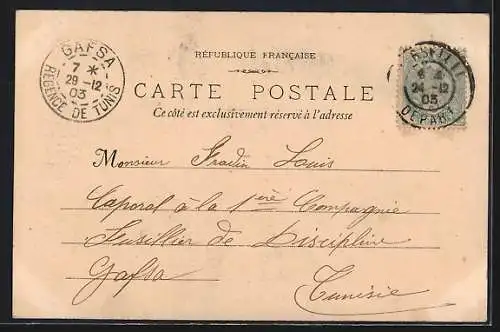 GAFSA
7 *
29 -12
03
REGENCE DE TUNIS
RÉPUBLIQUE FRANÇAISE
24 -12
03
DEPART
CARTE POSTALE
Ce côté est exclusivement réservé à l'adresse
Monsieur Fradin Louis
Caporal à la 1ère Compagnie
Fusillier de Discipline
Gafsa
Tunisie